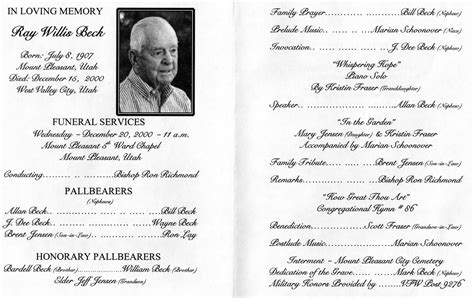 IN LOVING MEMORY
Ray Willis Beck
Born: July 8, 1907
Mount Pleasant, Utah
Died: December 15, 2000
West Valley City, Utah
FUNERAL SERVICES
Wednesday – December 20, 2000 – 11 a.m.
Mount Pleasant 5th Ward Chapel
Mount Pleasant, Utah
Conducting..............................Bishop Ron Richmond
PALLBEARERS
(Nephews)
Allan Beck..............................Bill Beck
J. Dee Beck..............................Wayne Beck
Brent Jensen (Son-in-Law)..............................Ron Lay
HONORARY PALLBEARERS
Bardell Beck (Brother)....................William Beck (Brother)
Elder Jeff Jensen (Grandson)
Family Prayer..............................Bill Beck (Nephew)
Prelude Music..............................Marian Schoonover (Niece)
Invocation..............................J. Dee Beck (Nephew)
"Whispering Hope"
Piano Solo
By Kristin Fraser (Granddaughter)
Speaker..............................Allan Beck (Nephew)
"In the Garden"
Mary Jensen (Daughter) & Kristin Fraser
Accompanied by Marian Schoonover
Family Tribute..............................Brent Jensen (Son-in-Law)
Remarks..............................Bishop Ron Richmond
"How Great Thou Art"
Congregational Hymn # 86
Benediction....................Scott Fraser (Grandson-in-Law)
Postlude Music..............................Marian Schoonover
Interment – Mount Pleasant City Cemetery
Dedication of the Grave....................Mark Beck (Nephew)
Military Honors Provided by....................VFW Post 9276